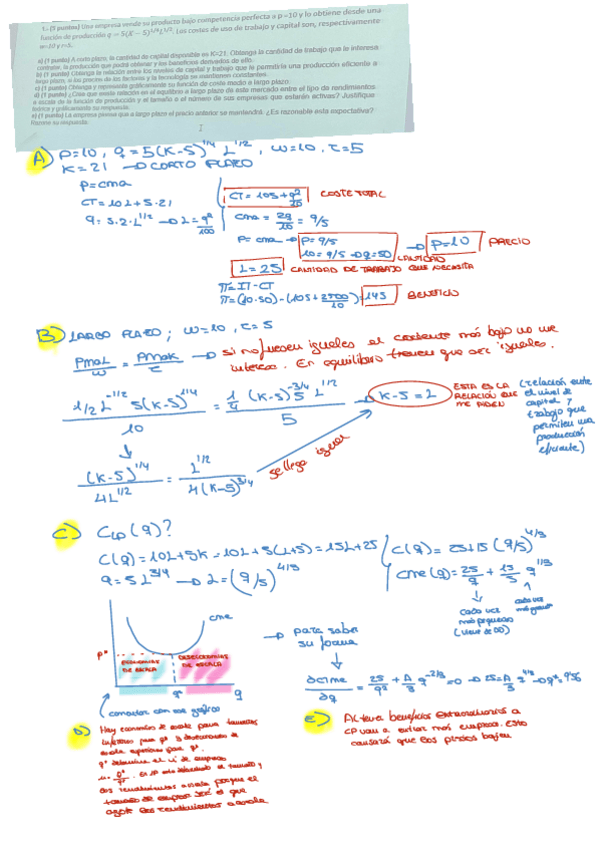 1.- (1 puntos) Una empresa vende su producto bajo competencia perfecta a p=10 y lo obtiene desde una
función de producción q = 5(K − 5)^1/4 L^1/2. Los costes de uso de trabajo y capital son, respectivamente
w=10 y r=5.
a) (1 punto) A corto plazo, la cantidad de capital disponible es K=21. Obtenga la cantidad de trabajo que le interesa
contratar, la producción que podrá obtener y los beneficios derivados de ello.
b) (1 punto) Obtenga la relación entre los niveles de capital y trabajo que le permitiría una producción eficiente a
largo plazo, si los precios de los factores y la tecnología se mantienen constantes.
c) (1 punto) Obtenga y represente gráficamente su función de coste medio a largo plazo.
d) (1 punto) ¿Cree que existe relación en el equilibrio a largo plazo de este mercado entre el tipo de rendimientos
a escala de la función de producción y el tamaño o el número de sus empresas que estarán activas? Justifique
teórica y gráficamente su respuesta.
e) (1 punto) La empresa piensa que a largo plazo el precio anterior se mantendrá. ¿Es razonable esta expectativa?
Razone su respuesta.
A) P=10, q = 5(K-5)^1/4 L^1/2, w=10, r=5
K=21 → CORTO PLAZO
P=cma
CT=10L+5·21
q=5·2·L^1/2 → L=q²/100
CT=105+q²/10 COSTE TOTAL
cma=2q/10=q/5
P=cma → P=q/5
10=q/5 → q=50 CANTIDAD → P=10 PRECIO
L=25 CANTIDAD DE TRABAJO QUE NECESITA
π=IT-CT
π=(10·50)-(105+2500/10)=145 BENEFICIO
B) LARGO PLAZO; w=10, r=5
PmaL/w = PmaK/r → si no fuesen iguales el cociente más bajo no me
interesa. En equilibrio tienen que ser iguales.
1/2 L^-1/2 5(K-5)^1/4 / 10 = 1/4 (K-5)^-3/4 5 L^1/2 / 5 → K-5=L
ESTA ES LA RELACIÓN QUE ME PIDEN
(relación entre el nivel de capital y trabajo que permiten una producción eficiente)
(K-5)^1/4 / 4L^1/2 = L^1/2 / 4(K-5)^3/4
se llega igual
C) CLP(q)?
C(q)=10L+5K=10L+5(L+5)=15L+25
q=5L^3/4 → L=(q/5)^4/3
C(q)=25+15(q/5)^4/3
cme(q)=25/q + 15/5 q^1/3
cada vez más pequeño
cada vez más grande
cme
P*
ECONOMÍAS DE ESCALA
DESECONOMÍAS DE ESCALA
q* q
comentar con ese gráfico
→ para saber su forma
D) Hay economías de escala para tamaños
inferiores para q* y deseconomías de
escala superiores para q*.
q* determina el nº de empresas
E) Al tener beneficios extraordinarios a
CP van a entrar más empresas. Esto
causará que los precios bajen